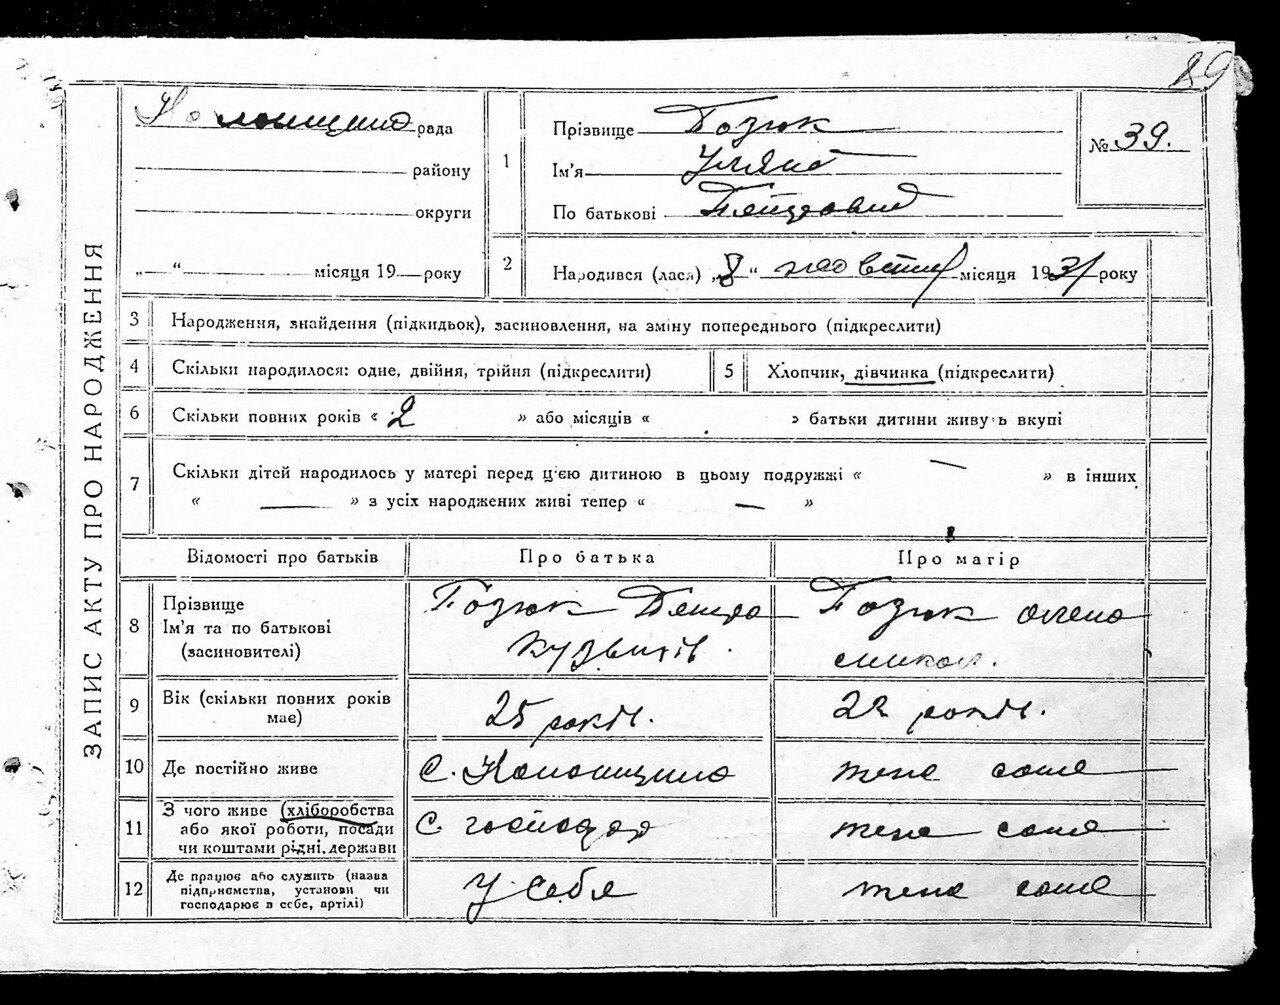 89
ЗАПИС АКТУ ПРО НАРОДЖЕННЯ
рада
району
округи
„ — “ місяця 19 — року
1
Прізвище Гозюк
Ім'я Уляна
По батькові
№ 39.
2
Народився (лася) „8“ жовтня місяця 1931 року
3 Народження, знайдення (підкидьок), засиновлення, на зміну попереднього (підкреслити)
4 Скільки народилося: одне, двійня, трійня (підкреслити)
5 Хлопчик, дівчинка (підкреслити)
6 Скільки повних років « 2 » або місяців « » батьки дитини живуть вкупі
7 Скільки дітей народилось у матері перед ц'ею дитиною в цьому подружжі « — » в інших
« — » з усіх народжених живі тепер « — »
Відомості про батьків
Про батька
Про матір
8 Прізвище
Ім'я та по батькові
(засиновителі)
Гозюк
Гозюк
9 Вік (скільки повних років
має)
25 років.
22 років.
10 Де постійно живе
с.
тене соме
11 З чого живе (хліборобства
або якої роботи, посади
чи коштами рідні, держави
с. господар
тене соме
12 Де працює або служить (назва
підприємства, установи чи
господарює в себе, артілі)
У себя
тене соме